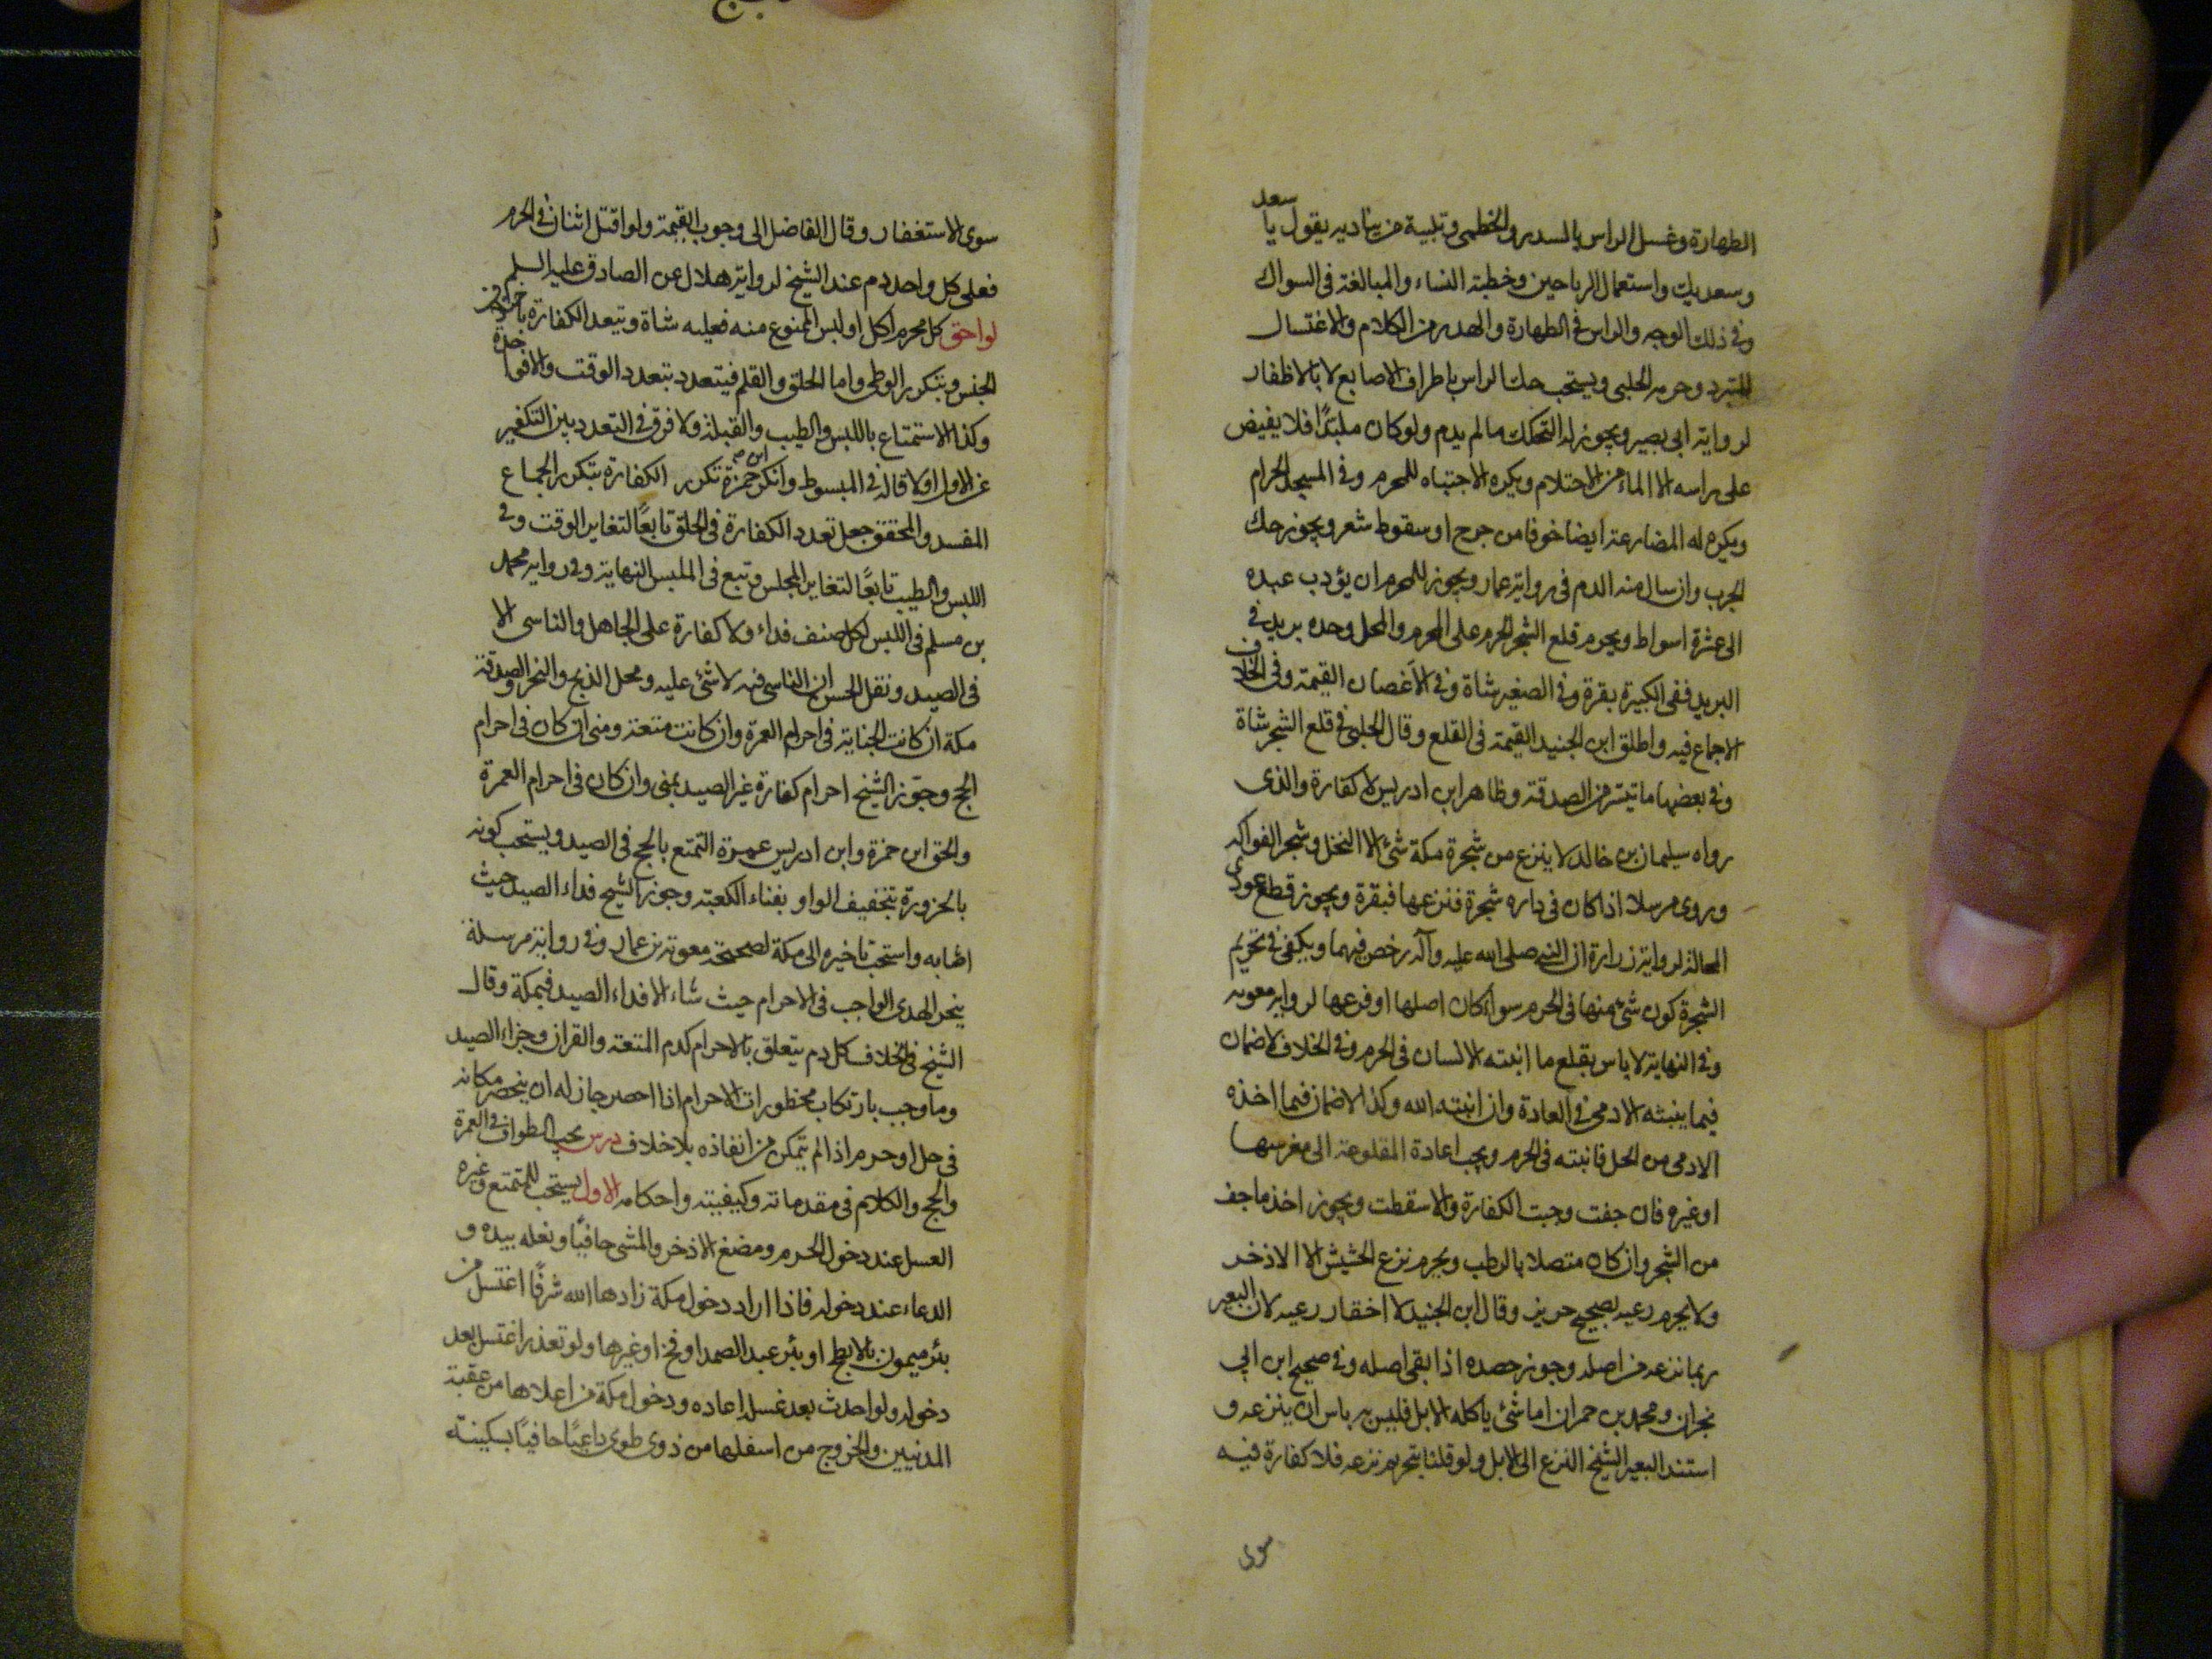 الطهارة وغسل الراس بالسدر والخطمى وتلبية من يناديه يقول يا سعد
وسعديك واستعمال الرياحين وخطبة النساء والمبالغة فى السواك
وفى ذلك الوجه والراس فى الطهارة والهدر من الكلام والاغتسال
للتبرد وحرمه الحلبى ويستحب حك الراس باطراف الاصابع لا بالاظفار
لرواية ابى بصير ويجوز له التحكك ما لم يدم ولو كان ملبّدًا فلا يفيض
على راسه الا الماء من الاحتلام ويكره الاحتباء للمحرم وفى المسجد الحرام
ويكره له المصارعة ايضا خوفا من جرح او سقوط شعر ويجوز حك
الجرب وان سال منه الدم فى رواية عمار ويجوز للمحرم ان يؤدب عبده
الى عشرة اسواط ويحرم قلع الشجر الحرم على المحرم والمحل وحده بريد فى
البريد ففى الكبيرة بقرة وفى الصغير شاة وفى الاغصان القيمة وفى الخلاف
الاجماع فيه واطلق ابن الجنيد القيمة فى القلع وقال الحلبى فى قلع الشجر شاة
وفى بعضها ما تيسر من الصدقة وظاهر ابن ادريس لا كفارة والذى
رواه سليمان بن خالد لا ينزع من شجرة مكة شئ الا النخل وشجر الفواكه
وروى مرسلا اذا كان فى داره شجرة فنزعها فبقرة ويجوز قطع عودى
المحالة لرواية زرارة ان النبى صلى الله عليه وآله رخص فيهما ويكفى فى تحريم
الشجرة كون شئ منها فى الحرم سواء كان اصلها او فرعها لرواية معوية
وفى النهاية لا باس بقلع ما انبته الانسان فى الحرم وفى الخلاف لا ضمان
فيما ينبته الادمى فى العادة وان انبته الله وكذا لا ضمان فيما اخذه
الادمى من الحل فانبته فى الحرم ويجب اعادة المقلوعة الى مغرسها
او غيره فان جفت وجبت الكفارة والا سقطت ويجوز اخذ ما جف
من الشجر وان كان متصلا بالرطب ويحرم نزع الحشيش الا الاذخر
ولا يحرم رعيه لصحيح حريز وقال ابن الجنيد لا اختار رعيه لان البعير
ربما نزعه من اصله وجوز حصده اذا بقى اصله وفى صحيح ابن ابى
نجران ومحمد بن حمران اما شئ ياكله الابل فليس به باس ان ينزعه و
استند البعير الشيخ النزع الى الابل ولو قلنا بتحريم نزعه فلا كفارة فيه
سوى
سوى الاستغفار وقال الفاضل الى وجوب القيمة ولو اقتتل اثنان فى الحرم
فعلى كل واحد دم عند الشيخ لرواية هلال عن الصادق عليه السلم
لواحق كل محرم اكل او لبس الممنوع منه فعليه شاة وتتعدد الكفارة باختلاف
الجنس وبتكرر الوطى واما الحلق والقلم فيتعدد بتعدد الوقت والا فواحدة
وكذا الاستمتاع باللبس والطيب والقبلة ولا فرق فى التعدد بين التكفير
عن الاول او لا قاله فى المبسوط وانكر ابن حمزة تكرر الكفارة بتكرر الجماع
المفسد والمحقق جعل تعدد الكفارة فى الحلق تابعًا لتغاير الوقت وفى
اللبس والطيب تابعًا لتغاير المجلس وتبع فى الملبس النهاية وفى رواية محمد
بن مسلم فى اللبس لكل صنف فداء ولا كفارة على الجاهل والناسى الا
فى الصيد ونقل الحسن ان الناسى فيه لا شئ عليه ومحل الذبح والنحر والصدقة
مكة ان كانت الجناية فى احرام العمرة وان كانت متعة ومنى ان كان فى احرام
الحج وجوّز الشيخ احرام كفارة غير الصيد بمنى وان كان فى احرام العمرة
والحق ابن حمزة وابن ادريس عمرة التمتع بالحج فى الصيد ويستحب كونه
بالحزورة بتخفيف الواو بفناء الكعبة وجوز الشيخ فداء الصيد حيث
اصابه واستحب تاخيره الى مكة لصحيحة معوية بن عمار وفى رواية مرسلة
ينحر الهدى الواجب فى الاحرام حيث شاء الا فداء الصيد فبمكة وقال
الشيخ فى الخلاف كل دم يتعلق بالاحرام كدم المتعة والقران وجزاء الصيد
وما وجب بارتكاب محظورات الاحرام اذا احصر جاز له ان ينحر مكانه
فى حل او حرم اذا لم يتمكن من انفاذه بلا خلاف درس يجب الطواف فى العمرة
والحج والكلام فى مقدماته وكيفيته واحكامه الاول يستحب للمتمتع وغيره
الغسل عند دخول الحرم ومضغ الاذخر والمشى حافيًا ونعله بيده و
الدعاء عند دخوله فاذا اراد دخول مكة زادها الله شرفًا اغتسل من
بئر ميمون بالابطح او بئر عبد الصمد او فخ او غيرها ولو تعذر اغتسل بعد
دخوله ولو احدث بعد غسل اعاده ودخول مكة من اعلاها من عقبة
المدنيين والخروج من اسفلها من ذوى طوى داعيًا حافيًا بسكينة